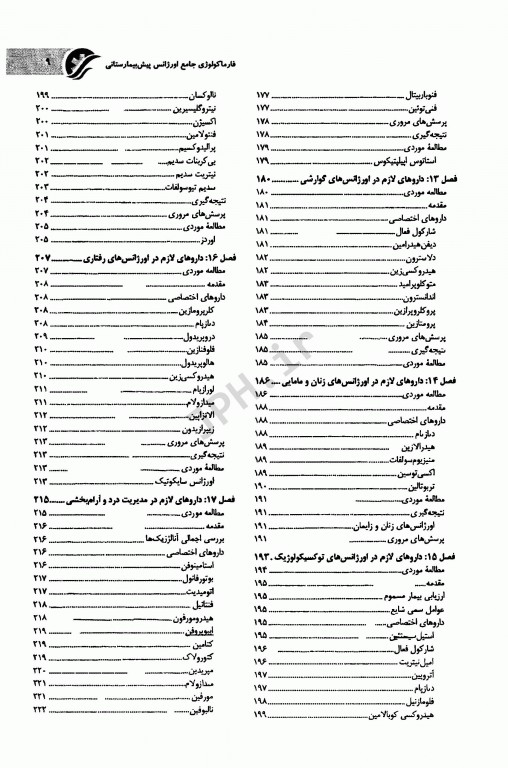 فارماکولوژی جامع اورژانس پیش‌بیمارستانی
۹
فنوباربیتال ۱۷۷
فنی‌توئین ۱۷۷
پرسش‌های مروری ۱۷۸
نتیجه‌گیری ۱۷۸
مطالعهٔ موردی ۱۷۹
استاتوس اپیلپتیکوس ۱۷۹
فصل ۱۳: داروهای لازم در اورژانس‌های گوارشی ۱۸۰
مطالعه موردی ۱۸۰
مقدمه ۱۸۱
داروهای اختصاصی ۱۸۱
شارکول فعال ۱۸۱
دیفن‌هیدرامین ۱۸۱
دلاسترون ۱۸۲
هیدروکسی‌زین ۱۸۲
متوکلوپرامید ۱۸۳
اندانسترون ۱۸۳
پروکلروپرازین ۱۸۳
پرومتازین ۱۸۴
پرسش‌های مروری ۱۸۵
نتیجه‌گیری ۱۸۵
مطالعهٔ موردی ۱۸۵
فصل ۱۴: داروهای لازم در اورژانس‌های زنان و مامایی ۱۸۶
مطالعه موردی ۱۸۶
مقدمه ۱۸۸
داروهای اختصاصی ۱۸۸
دیازپام ۱۸۸
هیدرالازین ۱۸۹
منیزیوم‌سولفات ۱۸۹
اکسی‌توسین ۱۸۹
تربوتالین ۱۹۰
مطالعهٔ موردی ۱۹۱
نتیجه‌گیری ۱۹۱
اورژانس‌های زنان و زایمان ۱۹۱
پرسش‌های مروری ۱۹۱
فصل ۱۵: داروهای لازم در اورژانس‌های توکسیکولوژیک ۱۹۳
مطالعهٔ موردی ۱۹۴
مقدمه ۱۹۵
ارزیابی بیمار مسموم ۱۹۵
عوامل سمی شایع ۱۹۵
داروهای اختصاصی ۱۹۵
استیل‌سیستئین ۱۹۵
شارکول فعال ۱۹۶
امیل‌نیتریت ۱۹۶
آتروپین ۱۹۷
دیازپام ۱۹۷
فلومازنیل ۱۹۸
هیدروکسی کوبالامین ۱۹۹
نالوکسان ۱۹۹
نیتروگلیسیرین ۲۰۰
اکسیژن ۲۰۰
فنتولامین ۲۰۱
پرالیدوکسیم ۲۰۱
بی‌کربنات سدیم ۲۰۲
نیتریت سدیم ۲۰۲
سدیم تیوسولفات ۲۰۳
نتیجه‌گیری ۲۰۴
پرسش‌های مروری ۲۰۴
مطالعهٔ موردی ۲۰۵
اوردز ۲۰۵
فصل ۱۶: داروهای لازم در اورژانس‌های رفتاری ۲۰۷
مطالعه موردی ۲۰۷
مقدمه ۲۰۸
داروهای اختصاصی ۲۰۸
کلرپرومازین ۲۰۸
دیازپام ۲۰۸
دروپریدول ۲۰۹
فلوفنازین ۲۱۰
هالوپریدول ۲۱۰
هیدروکسی‌زین ۲۱۰
لورازپام ۲۱۱
میدازولام ۲۱۱
الانزاپین ۲۱۲
زیپرازیدون ۲۱۲
پرسش‌های مروری ۲۱۳
نتیجه‌گیری ۲۱۳
مطالعهٔ موردی ۲۱۳
اورژانس سایکوتیک ۲۱۳
فصل ۱۷: داروهای لازم در مدیریت درد و آرام‌بخشی ۲۱۵
مطالعه موردی ۲۱۵
مقدمه ۲۱۶
بررسی اجمالی آنالژزیک‌ها ۲۱۶
داروهای اختصاصی ۲۱۶
استامینوفن ۲۱۶
بوتورفانول ۲۱۷
اتومیدیت ۲۱۷
فنتانیل ۲۱۸
هیدرومورفون ۲۱۸
ایبوپروفن ۲۱۹
کتامین ۲۱۹
کتورولاک ۲۱۹
مپریدین ۲۲۰
میدازولام ۲۲۱
مورفین ۲۲۱
نالبوفین ۲۲۲